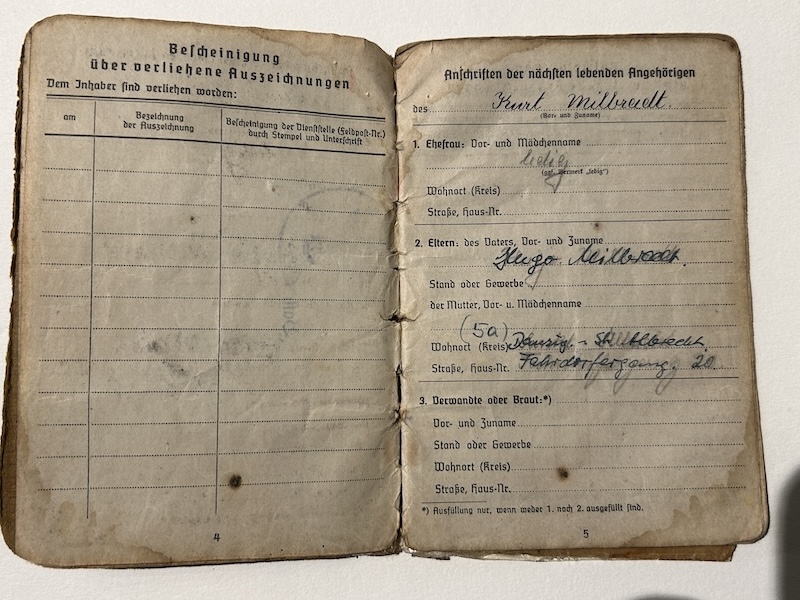 Bescheinigung
über verliehene Auszeichnungen
Dem Inhaber sind verliehen worden:
am
Bezeichnung
der Auszeichnung
Bescheinigung der Dienststelle (Feldpost-Nr.)
durch Stempel und Unterschrift
4
Anschriften der nächsten lebenden Angehörigen
des Kurt Milbradt.
(Vor- und Zuname)
1. Ehefrau: Vor- und Mädchenname
ledig
(ggf. Vermerk „ledig")
Wohnort (Kreis)
Straße, Haus-Nr.
2. Eltern: des Vaters, Vor- und Zuname
Hugo Milbradt.
Stand oder Gewerbe
der Mutter, Vor- u. Mädchenname
(5a)
Wohnort (Kreis) Danzig -
Straße, Haus-Nr. 20
3. Verwandte oder Braut:*)
Vor- und Zuname
Stand oder Gewerbe
Wohnort (Kreis)
Straße, Haus-Nr.
*) Ausfüllung nur, wenn weder 1. noch 2. ausgefüllt sind.
5